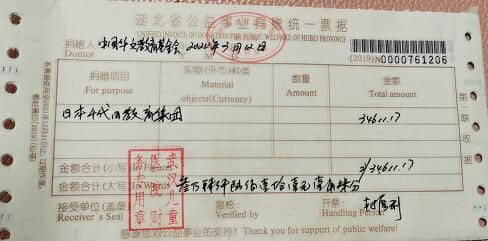 湖北省公益事业捐赠统一票据
UNIFIED INVOICE OF DONATION FOR PUBLIC WELFARE OF HUBEI PROVINCE
捐赠人 中国华文教育基金会 2020年3月12日
Donor
(2019)N0000761206
捐赠项目 实物(外币)种类 数量 金额
For purpose Material objects(Currency) Amount Total amount
日本千代田教育集团 34611.17
金额合计(小写)In Figures 34611.17
金额合计(大写)In Words 叁万肆仟陆佰壹拾壹元壹角柒分
武汉儿童
医院财
务专用章
接受单位(盖章) 复核: 开票:
Receiver's Seal Verified by Handling Person
感谢您对公益事业的支持! Thank you for support of public welfare!